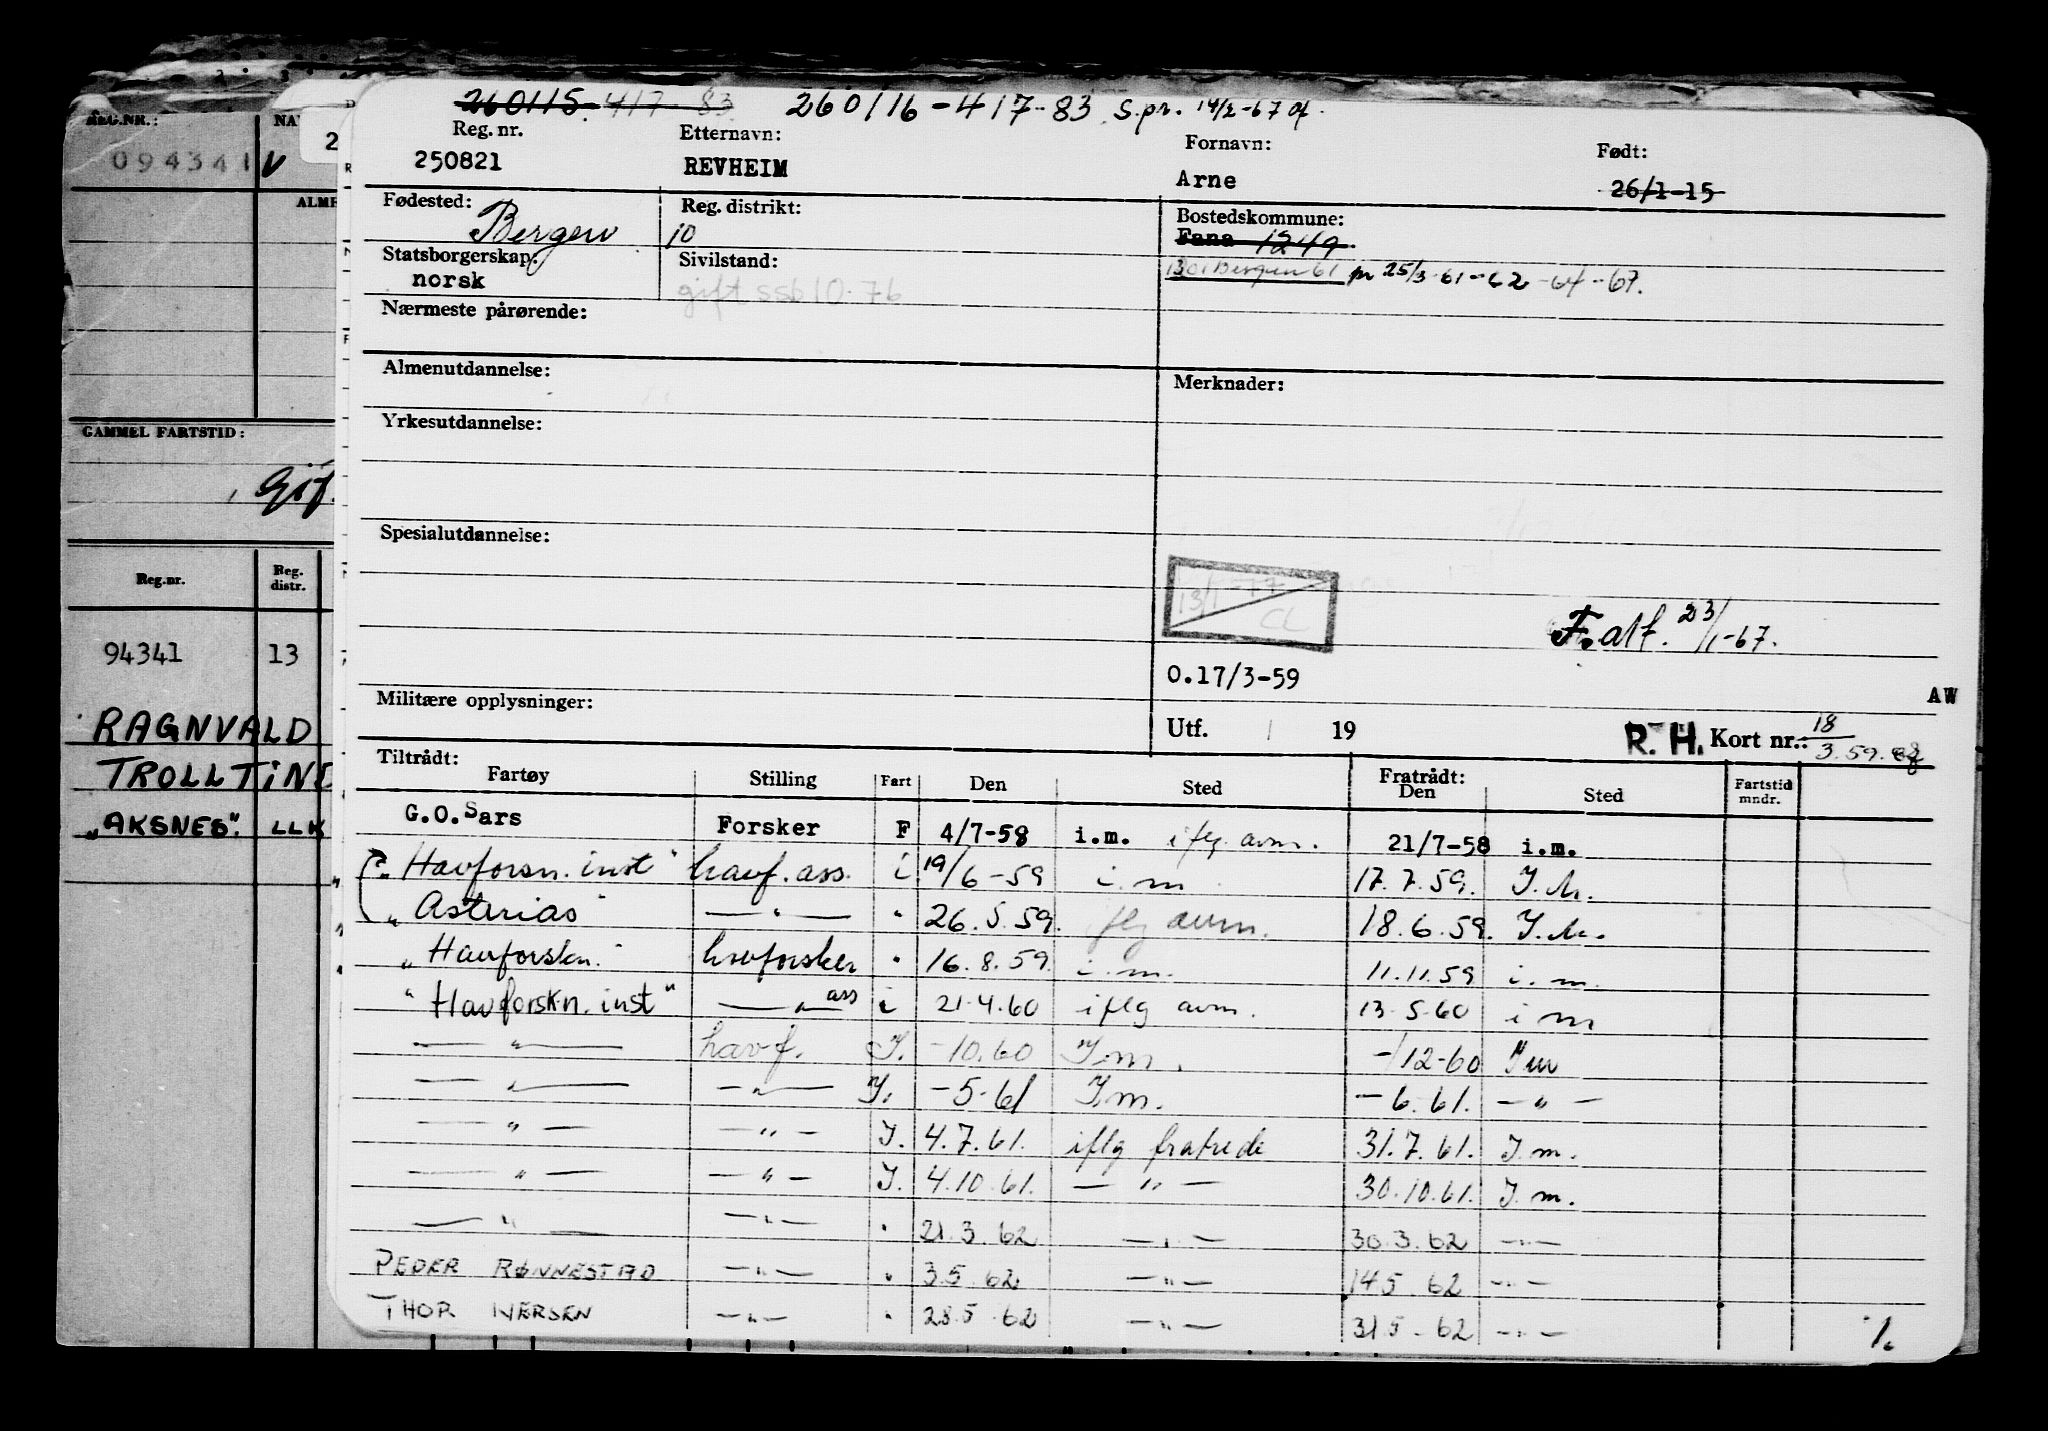 260115-417-83 260116-417-83 S.pr. 14/2-67
REG.NR.:
094341 V
ALME
GAMMEL FARTSTID:
Gif.
Reg.nr. Reg. distr.
94341 13
RAGNVALD
TROLLTIND
„AKSNES". LLK
Reg. nr. Etternavn: Fornavn: Født:
250821 REVHEIM Arne 26/1-15
Fødested: Bergen Reg. distrikt: 10 Bostedskommune:
Fana 1249
Statsborgerskap: norsk Sivilstand: gift ssb 10.76 1301 Bergen 61 pr 25/3-61-62-64-67.
Nærmeste pårørende:
Almenutdannelse: Merknader:
Yrkesutdannelse:
Spesialutdannelse:
13/1-77
CL
F. alf. 23/1-67.
0.17/3-59
AW
Militære opplysninger: Utf. 19 R. H. Kort nr.: 18/3.59.
Tiltrådt: Fratrådt:
Fartøy Stilling Fart Den Sted Den Sted Fartstid mndr.
G.O.Sars Forsker F 4/7-58 i.m. iflg. avm. 21/7-58 i.m.
„Havforsn. inst" havf. ass. i. 19/6-59 i.m 17.7.59. I.M.
„Asterias" —"— " 26.5.59. iflg avm. 18.6.59. I.M.
„Havforskn." havforsker " 16.8.59. i.m. 11.11.59 i.m.
"Havforskn. inst" —"— ass i 21.4.60 iflg avm. 13.5.60 i m
—"— havf. I. -10.60 I.m. -/12-60 I m
—"— —"— I. -5-61 I.m. -6.61. —"—
—"— —"— I. 4.7.61. iflg fratrede 31.7.61. I.m.
—"— —"— I. 4.10.61. —"— 30.10.61. I.m.
—"— —"— " 21.3.62 —"— 30.3.62 —"—
PEDER RØNNESTAD —"— " 3.5.62 —"— 14.5.62 —"—
THOR IVERSEN —"— " 28.5.62 —"— 31.5.62 —"—